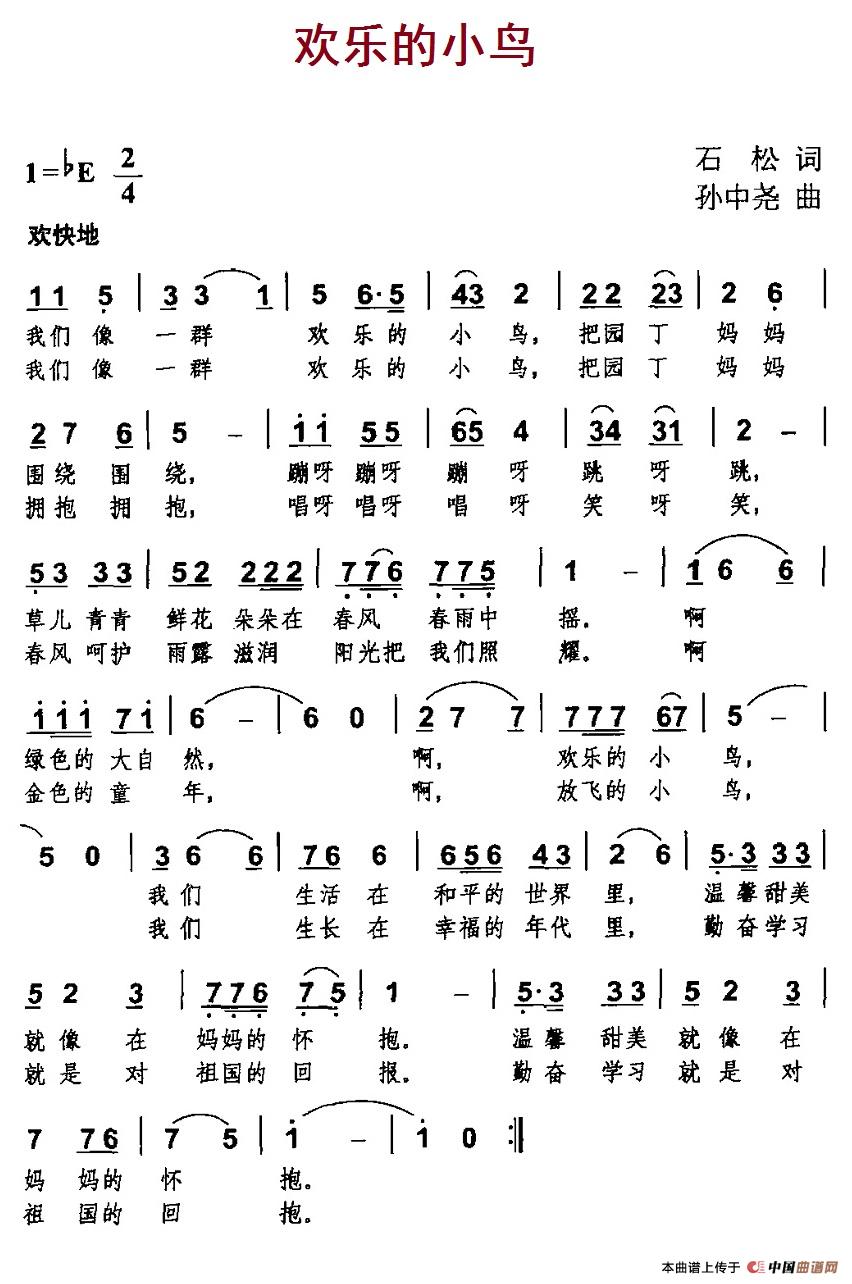 欢乐的小鸟
1=♭E 2/4
石 松 词
孙中尧 曲
欢快地
1 1 5 | 3 3 1 | 5 6·5 | 43 2 | 22 23 | 2 6 |
我们 像 一 群 欢 乐的 小 鸟, 把园 丁 妈 妈
我们 像 一 群 欢 乐的 小 鸟, 把园 丁 妈 妈
2 7 6 | 5 – | i i 55 | 65 4 | 34 31 | 2 – |
围绕 围 绕, 蹦呀 蹦呀 蹦 呀 跳 呀 跳,
拥抱 拥 抱, 唱呀 唱呀 唱 呀 笑 呀 笑,
53 33 | 52 222 | 776 775 | 1 – | 1 6 6 |
草儿 青青 鲜花 朵朵在 春风 春雨中 摇。 啊
春风 呵护 雨露 滋润 阳光把 我们照 耀。 啊
i i i 7 i | 6 – | 6 0 | 2 7 7 | 777 67 | 5 – |
绿色的 大自 然, 啊, 欢乐的 小 鸟,
金色的 童 年, 啊, 放飞的 小 鸟,
5 0 | 3 6 6 | 76 6 | 656 43 | 2 6 | 5·3 33 |
我 们 生活 在 和平的 世界 里, 温馨甜美
我 们 生长 在 幸福的 年代 里, 勤奋学习
5 2 3 | 776 75 | 1 – | 5·3 33 | 5 2 3 |
就像 在 妈妈的 怀 抱。 温馨 甜美 就像 在
就是 对 祖国的 回 报。 勤奋 学习 就是 对
7 76 | 7 5 | i – | i 0 :‖
妈 妈的 怀 抱。
祖 国的 回 抱。
本曲谱上传于 中国曲谱网